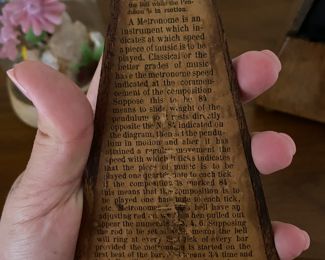 the Bell while the Pen-
dulum is in motion.
A Metronome is an
instrument which in-
dicates at which speed
a piece of music is to be
played. Classical or the
better grades of music
have the metronome speed
indicated at the commen-
cement of the composition
Suppose this to be 84
means to slide weight of the
pendulum so it rests directly
opposite the N. 84 indicated on
the diagram, then set the pendu-
lum in motion and after it has
attained a regular movement the
speed with which it ticks indicates
that the piece of music is to be
played one quarter note to each tick.
if the composition is marked 84
this means that the composition is to
be played one half note to each tick,
etc. Metronomes with bell have an
adjusting rod on which when pulled out
appear the numerals 2, 3, 4, 6. Supposing
the rod to be set at 3 means the bell
will ring at every 3d tick of every bar
provided the metronome is started on the
first beat of the bar. No. 2 means 2/4 time and